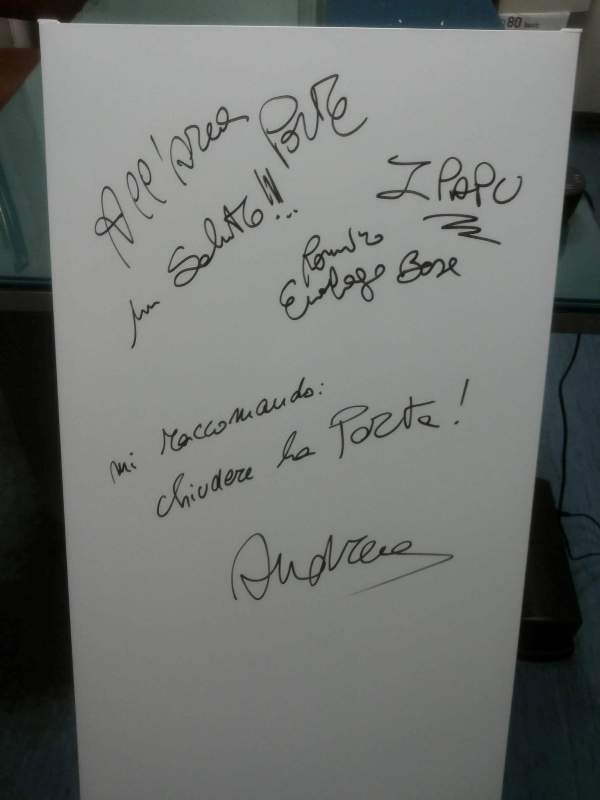 80
All'area Porte
un Saluto!!!...
I PAPU
Ramiro
Besa
mi raccomando:
chiudere la Porta!
Andrea